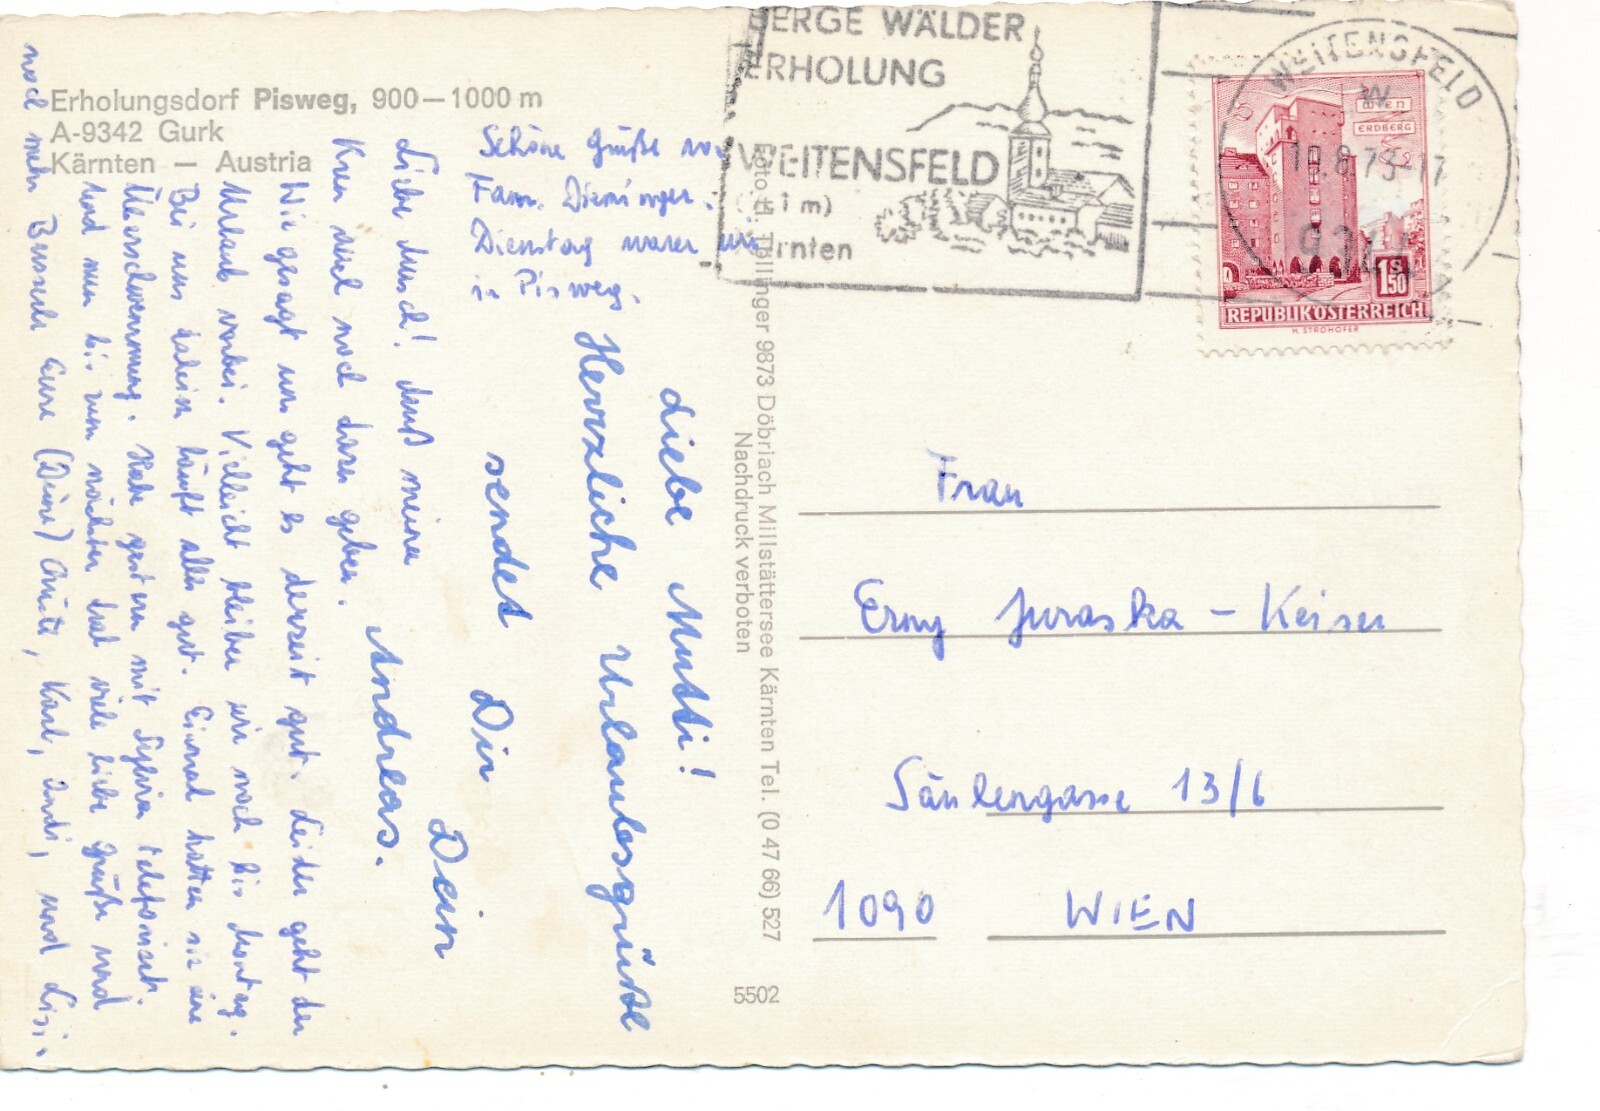 Erholungsdorf Pisweg, 900—1000 m
A-9342 Gurk
Kärnten — Austria
BERGE WÄLDER
ERHOLUNG
WEITENSFELD
WEITENSFELD
19.8.73-17
9344
WIEN
ERDBERG
1S50
REPUBLIK ÖSTERREICH
H. STROHOFER
Schöne Grüße von
Fam. Dieminger.
Dienstag waren wir
in Pisweg.
Liebe Mutti!
Herzliche Urlaubsgrüße
sendet Dir Dein
Andreas.
Liebe Omsch! Muß meinen
Kren viel noch dazu geben.
Wie gesagt uns geht es derzeit gut. Leider geht der
Urlaub vorbei. Vielleicht bleiben wir noch bis Montag.
Bei uns daheim läuft alles gut. Einmal hatten sie eine
Überschwemmung. Habe gestern mit Sylvia telefoniert.
Und nun bis zum nächsten Mal viele liebe Grüße und
noch mehr Busserln Eure (Deine) Christl, Karl, Andi, und Lisi.
Foto H. Töllinger 9873 Döbriach Millstättersee Kärnten Tel. (0 47 66) 527
Nachdruck verboten
5502
Frau
Erny Juraska - Keiser
Säulengasse 13/6
1090 WIEN